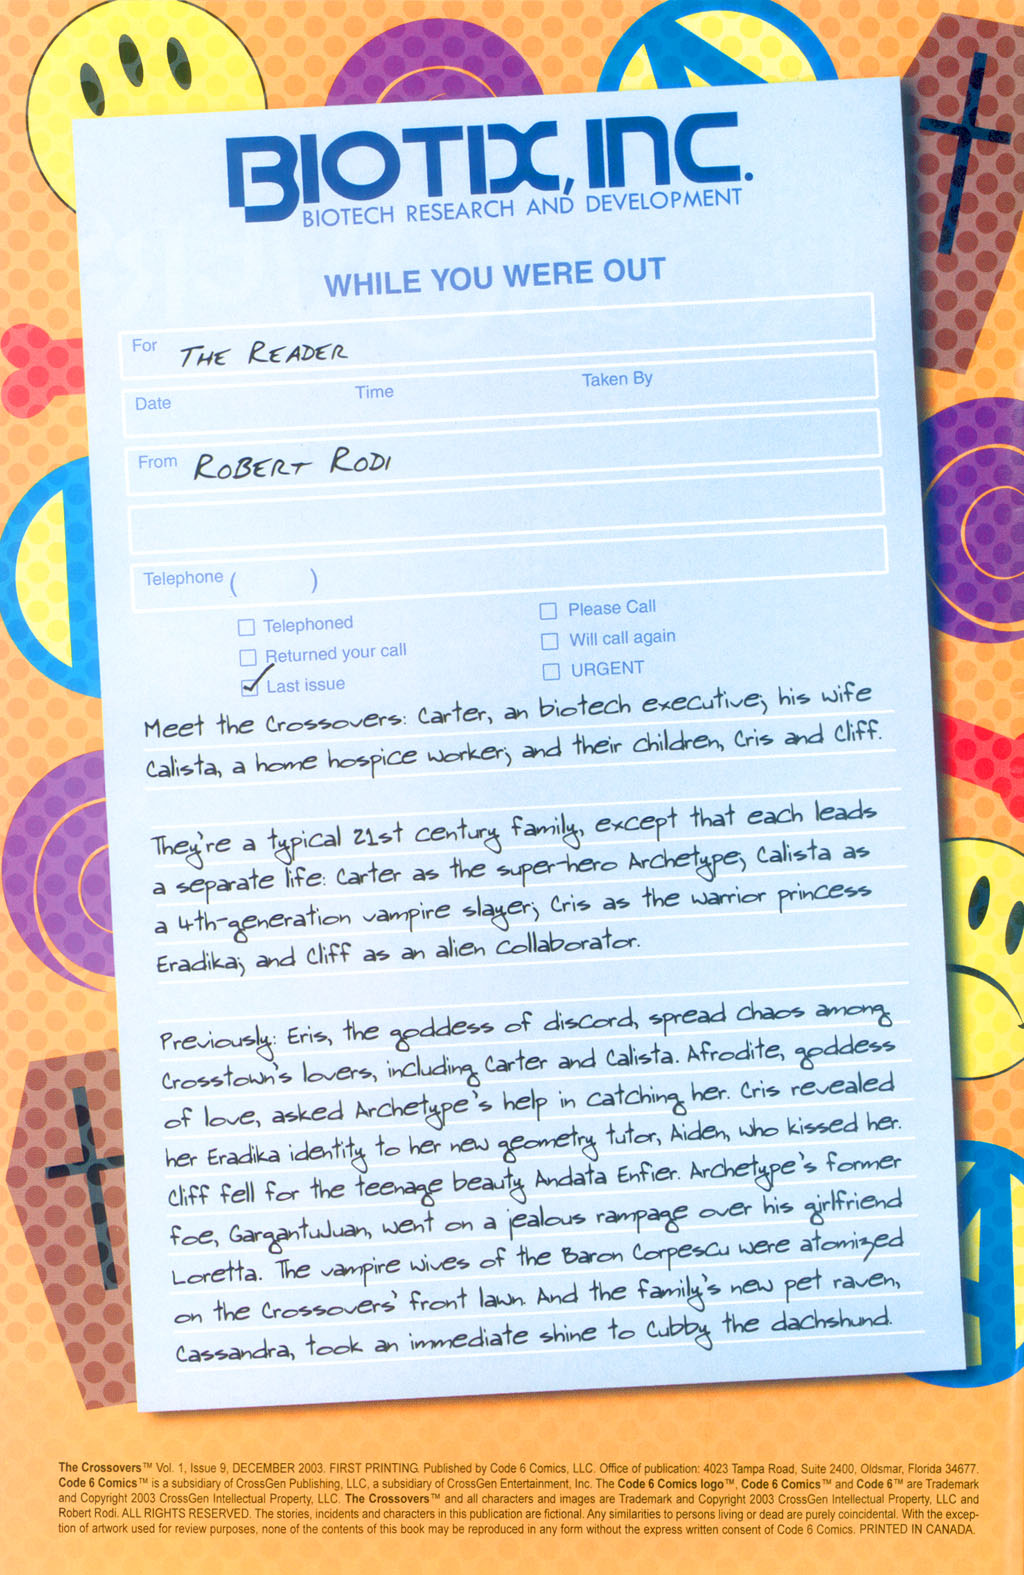 BIOTIX, INC.
BIOTECH RESEARCH AND DEVELOPMENT
WHILE YOU WERE OUT
For THE READER
Date Time Taken By
From ROBERT RODI
Telephone ( )
Telephoned
Returned your call
Last issue
Please Call
Will call again
URGENT
Meet the Crossovers: Carter, an biotech executive; his wife
Calista, a home hospice worker; and their children, Cris and Cliff.
They're a typical 21st century family, except that each leads
a separate life: Carter as the super-hero Archetype; Calista as
a 4th-generation vampire slayer; Cris as the warrior princess
Eradika; and Cliff as an alien collaborator.
Previously: Eris, the goddess of discord, spread chaos among
Crosstown's lovers, including Carter and Calista. Afrodite, goddess
of love, asked Archetype's help in catching her. Cris revealed
her Eradika identity to her new geometry tutor, Aiden, who kissed her.
Cliff fell for the teenage beauty Andata Enfier. Archetype's former
foe, GargantuJuan, went on a jealous rampage over his girlfriend
Loretta. The vampire wives of the Baron Corpescu were atomized
on the Crossovers' front lawn. And the family's new pet raven,
Cassandra, took an immediate shine to Cubby the dachshund.
The Crossovers™ Vol. 1, Issue 9, DECEMBER 2003. FIRST PRINTING. Published by Code 6 Comics, LLC. Office of publication: 4023 Tampa Road, Suite 2400, Oldsmar, Florida 34677.
Code 6 Comics™ is a subsidiary of CrossGen Publishing, LLC, a subsidiary of CrossGen Entertainment, Inc. The Code 6 Comics logo™, Code 6 Comics™ and Code 6™ are Trademark
and Copyright 2003 CrossGen Intellectual Property, LLC. The Crossovers™ and all characters and images are Trademark and Copyright 2003 CrossGen Intellectual Property, LLC and
Robert Rodi. ALL RIGHTS RESERVED. The stories, incidents and characters in this publication are fictional. Any similarities to persons living or dead are purely coincidental. With the excep-
tion of artwork used for review purposes, none of the contents of this book may be reproduced in any form without the express written consent of Code 6 Comics. PRINTED IN CANADA.